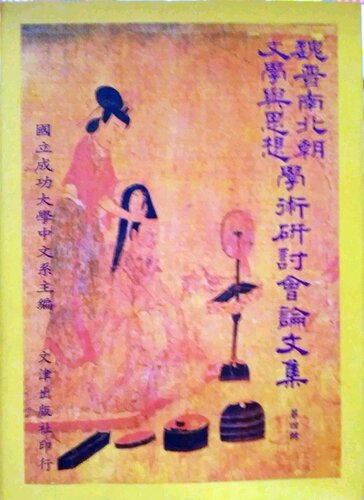 魏晉南北朝
文學與思想
學術研討會論文集
第四輯
國立成功大學中文系主編
文津出版社印行